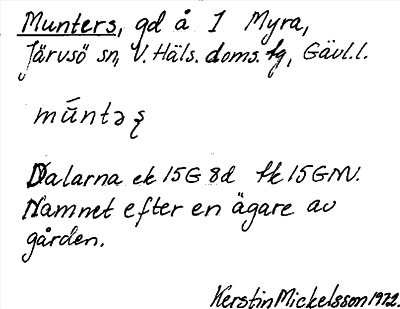 Munters, gd å 1 Myra,
Järvsö sn, V. Häls. doms. fg, Gävl.l.
mū́ntəʂ
Dalarna ek 15G 8d fk 15GNV.
Namnet efter en ägare av
gården.
Kerstin Mickelsson 1972.